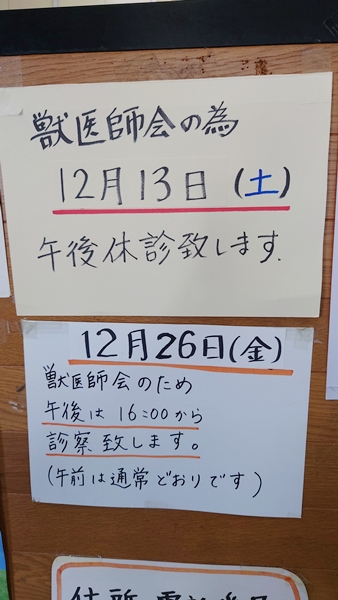 獣医師会の為
12月13日(土)
午後休診致します.
12月26日(金)
獣医師会のため
午後は16:00から
診察致します。
(午前は通常どおりです)